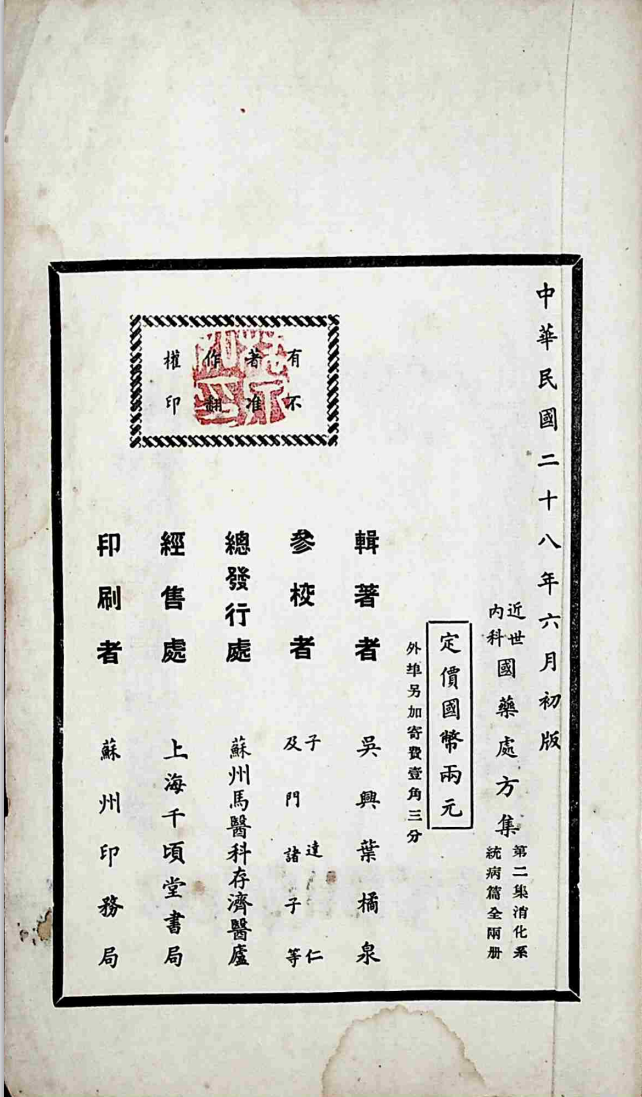 中華民國二十八年六月初版
近世
內科
國藥處方集
第二集消化系
統病篇全兩册
定價國幣兩元
外埠另加寄費壹角三分
輯著者 吳興葉橘泉
參校者 子達仁
及門諸子等
總發行處 蘇州馬醫科存濟醫廬
經售處 上海千頃堂書局
印刷者 蘇州印務局
有著作權
不准翻印